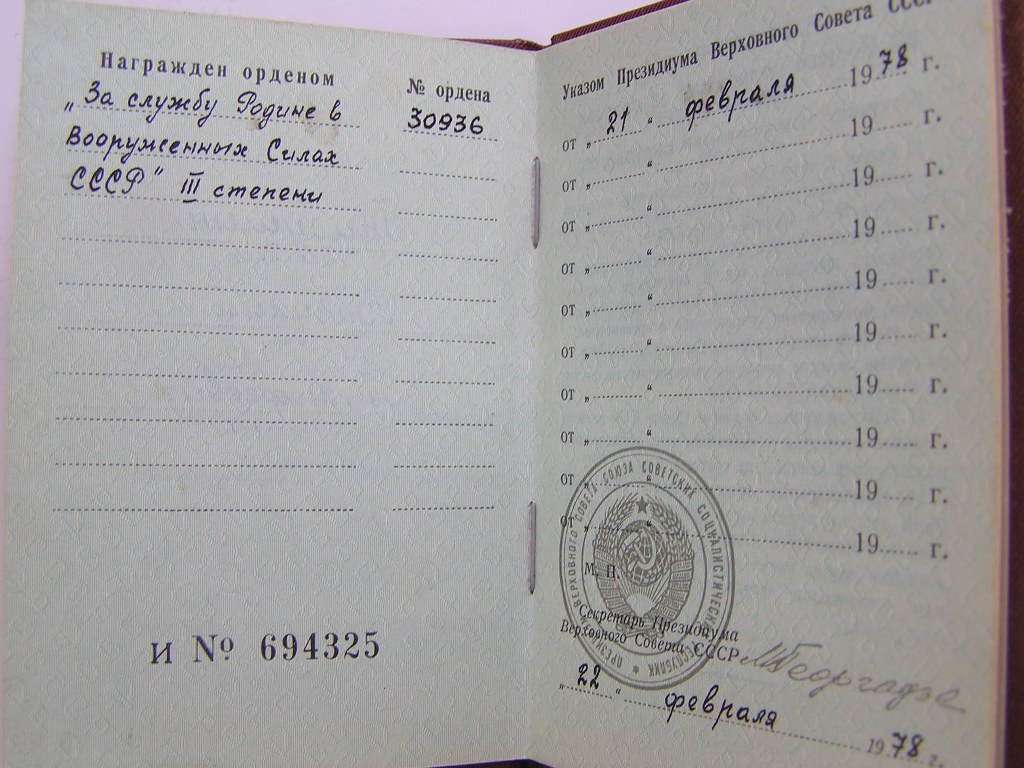 Награжден орденом
№ ордена
„За службу Родине в
30936
Вооруженных Силах
СССР" III степени
И № 694325
Указом Президиума Верховного Совета СССР
от „ 21 “ февраля 1978 г.
от „ “ 19 г.
от „ “ 19 г.
от „ “ 19 г.
от „ “ 19 г.
от „ “ 19 г.
от „ “ 19 г.
от „ “ 19 г.
от „ “ 19 г.
от „ “ 19 г.
ПРЕЗИДИУМ ВЕРХОВНОГО СОВЕТА СОЮЗА СОВЕТСКИХ СОЦИАЛИСТИЧЕСКИХ РЕСПУБЛИК
М. П.
Секретарь Президиума
Верховного Совета СССР
МГеоргадзе
„ 22 “ февраля 1978 г.